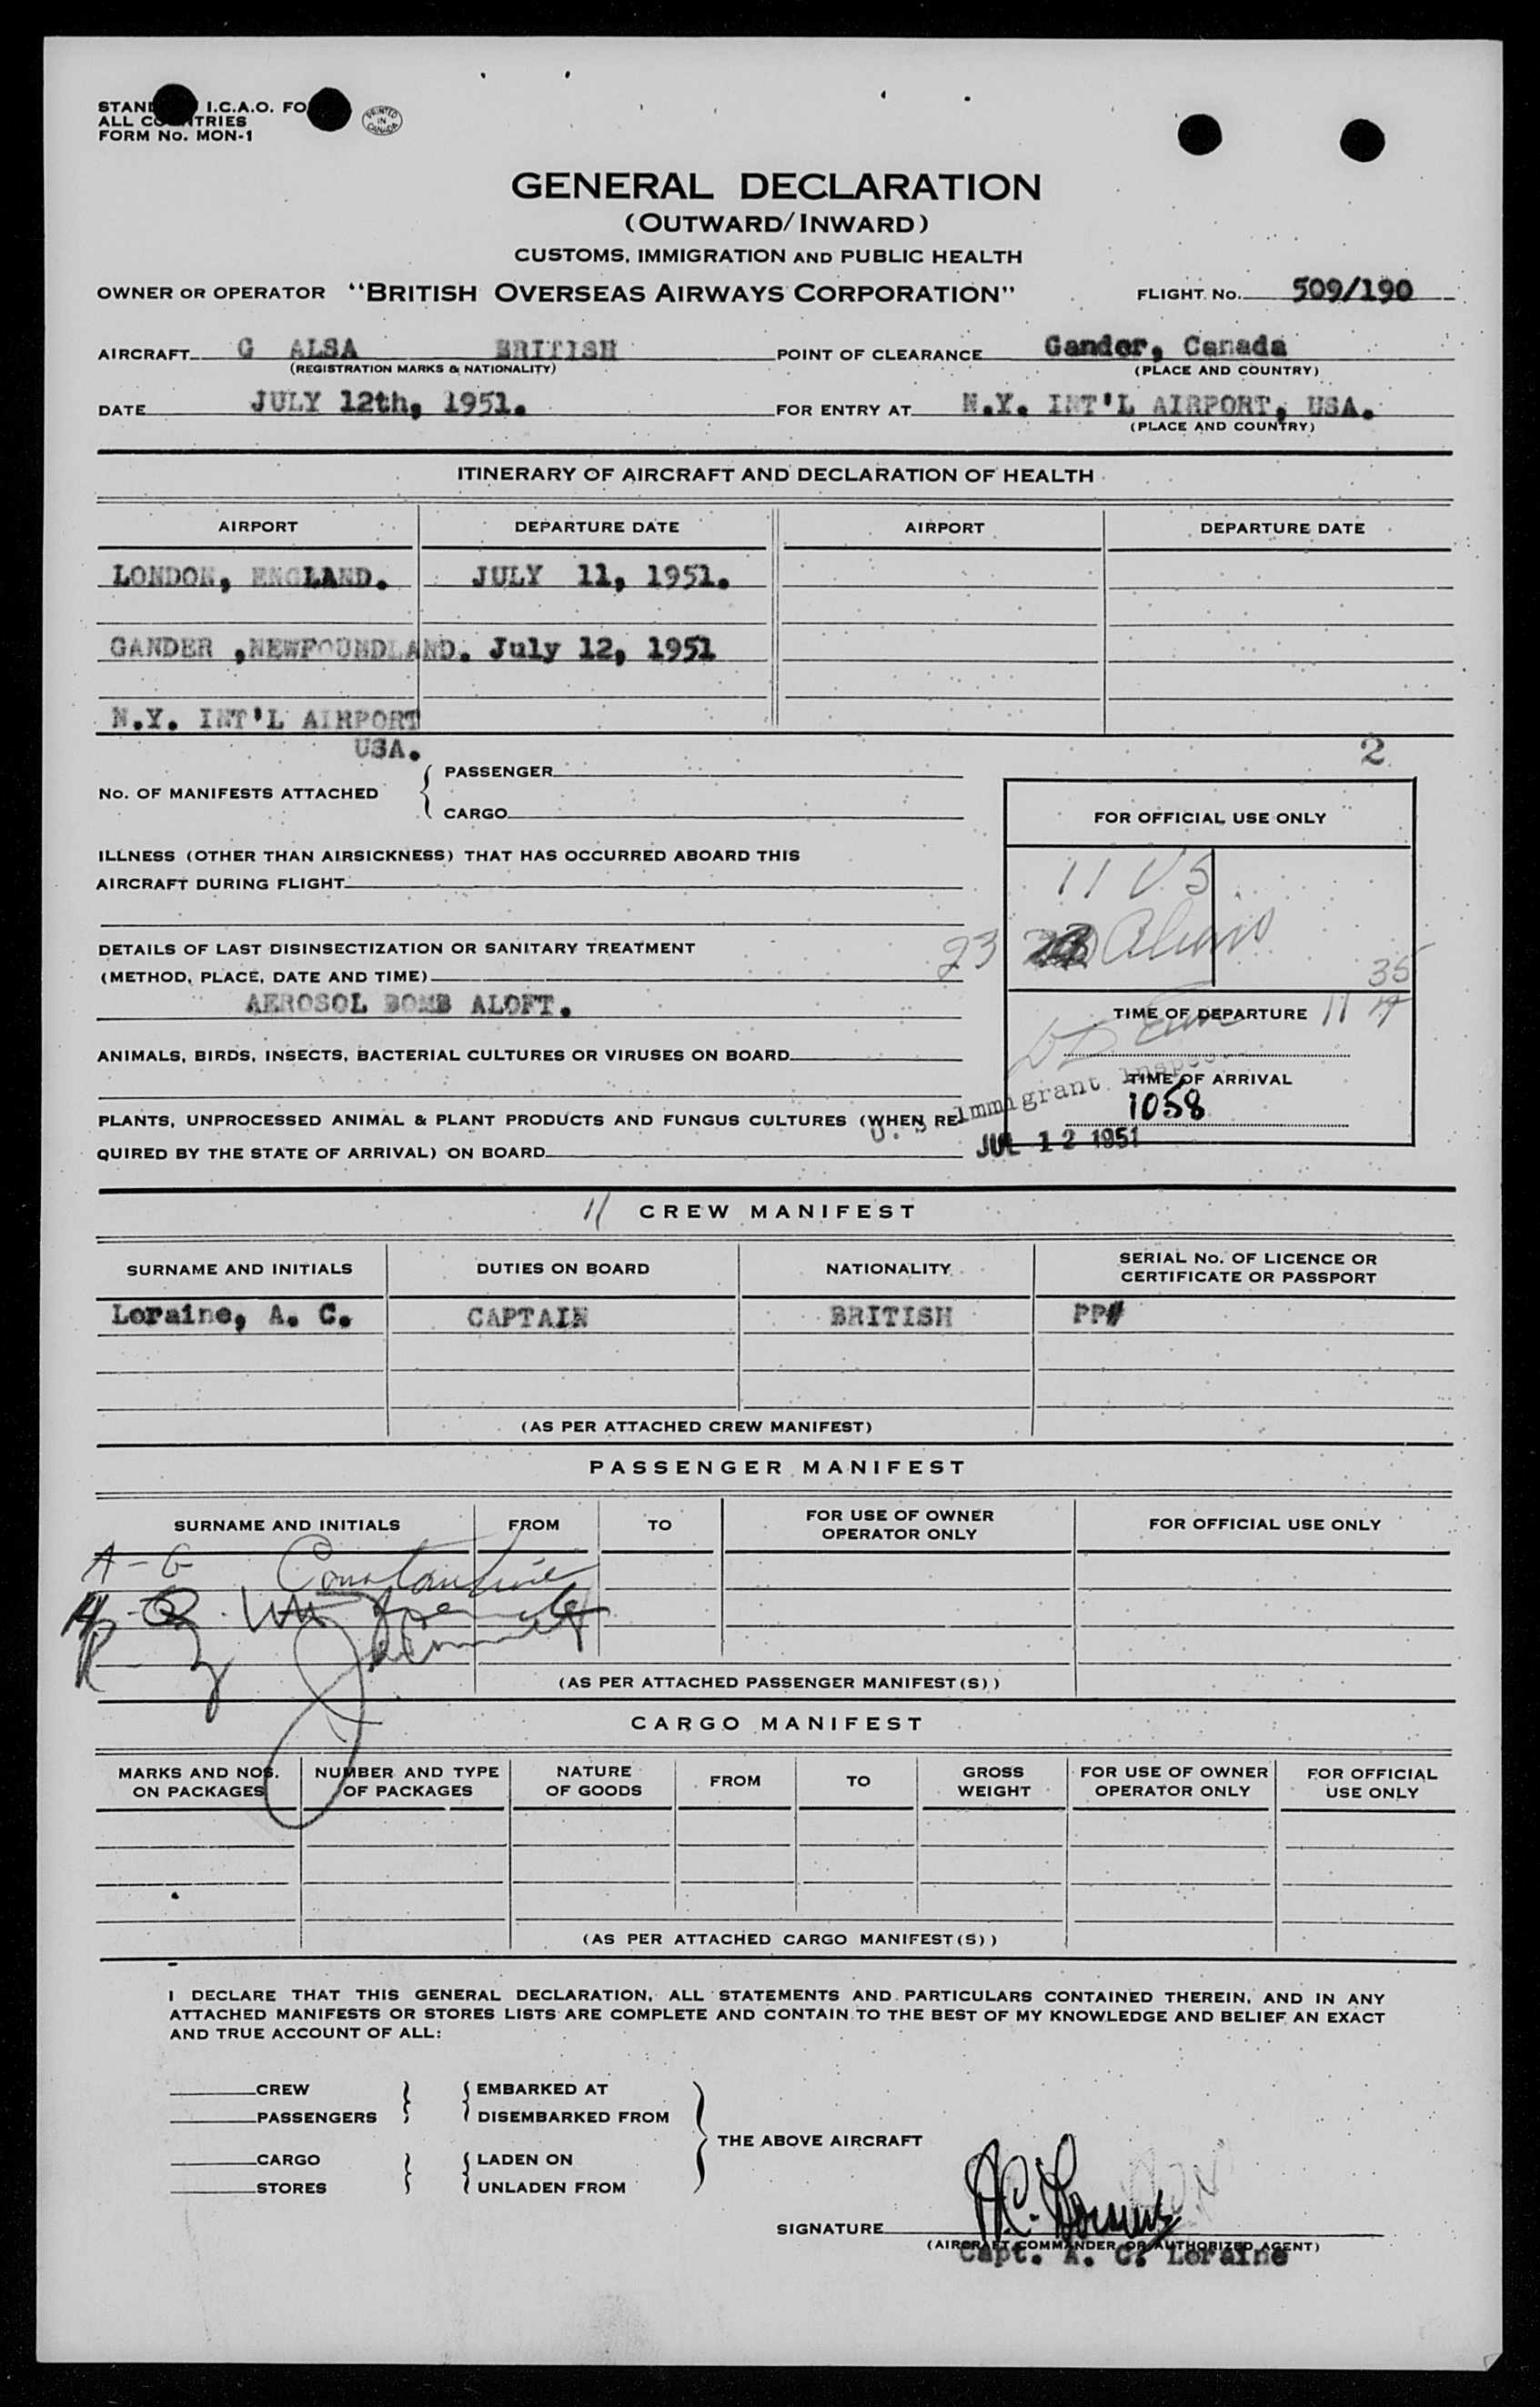 I.C.A.O.
ALL
FORM No. MON-1
PRINTED IN CANADA
GENERAL DECLARATION
(OUTWARD/INWARD)
CUSTOMS, IMMIGRATION AND PUBLIC HEALTH
OWNER OR OPERATOR "BRITISH OVERSEAS AIRWAYS CORPORATION" FLIGHT No. 509/190
AIRCRAFT G ALSA BRITISH POINT OF CLEARANCE Gander, Canada
(REGISTRATION MARKS & NATIONALITY) (PLACE AND COUNTRY)
DATE JULY 12th, 1951. FOR ENTRY AT N.Y. INT'L AIRPORT, USA.
(PLACE AND COUNTRY)
ITINERARY OF AIRCRAFT AND DECLARATION OF HEALTH
AIRPORT DEPARTURE DATE AIRPORT DEPARTURE DATE
LONDON, ENGLAND. JULY 11, 1951.
GANDER ,NEWFOUNDLAND. July 12, 1951
N.Y. INT'L AIRPORT
USA.
2
No. OF MANIFESTS ATTACHED { PASSENGER
CARGO
FOR OFFICIAL USE ONLY
ILLNESS (OTHER THAN AIRSICKNESS) THAT HAS OCCURRED ABOARD THIS
AIRCRAFT DURING FLIGHT
11 US
DETAILS OF LAST DISINSECTIZATION OR SANITARY TREATMENT
(METHOD, PLACE, DATE AND TIME)
23 Aliens
35
AEROSOL BOMB ALOFT.
TIME OF DEPARTURE 11
ANIMALS, BIRDS, INSECTS, BACTERIAL CULTURES OR VIRUSES ON BOARD
TIME OF ARRIVAL
1058
U. S. Immigrant Inspec
PLANTS, UNPROCESSED ANIMAL & PLANT PRODUCTS AND FUNGUS CULTURES (WHEN RE-
JUL 12 1951
QUIRED BY THE STATE OF ARRIVAL) ON BOARD
11 CREW MANIFEST
SURNAME AND INITIALS DUTIES ON BOARD NATIONALITY SERIAL No. OF LICENCE OR
CERTIFICATE OR PASSPORT
Loraine, A. C. CAPTAIN BRITISH PP#
(AS PER ATTACHED CREW MANIFEST)
PASSENGER MANIFEST
SURNAME AND INITIALS FROM TO FOR USE OF OWNER
OPERATOR ONLY FOR OFFICIAL USE ONLY
A - G Constantine
(AS PER ATTACHED PASSENGER MANIFEST(S))
CARGO MANIFEST
MARKS AND NOS.
ON PACKAGES NUMBER AND TYPE
OF PACKAGES NATURE
OF GOODS FROM TO GROSS
WEIGHT FOR USE OF OWNER
OPERATOR ONLY FOR OFFICIAL
USE ONLY
(AS PER ATTACHED CARGO MANIFEST(S))
I DECLARE THAT THIS GENERAL DECLARATION, ALL STATEMENTS AND PARTICULARS CONTAINED THEREIN, AND IN ANY
ATTACHED MANIFESTS OR STORES LISTS ARE COMPLETE AND CONTAIN TO THE BEST OF MY KNOWLEDGE AND BELIEF AN EXACT
AND TRUE ACCOUNT OF ALL:
CREW EMBARKED AT
PASSENGERS DISEMBARKED FROM
THE ABOVE AIRCRAFT
CARGO LADEN ON
STORES UNLADEN FROM
SIGNATURE A.C. Loraine
(AIRCRAFT COMMANDER OR AUTHORIZED AGENT)
Capt. A. C. Loraine